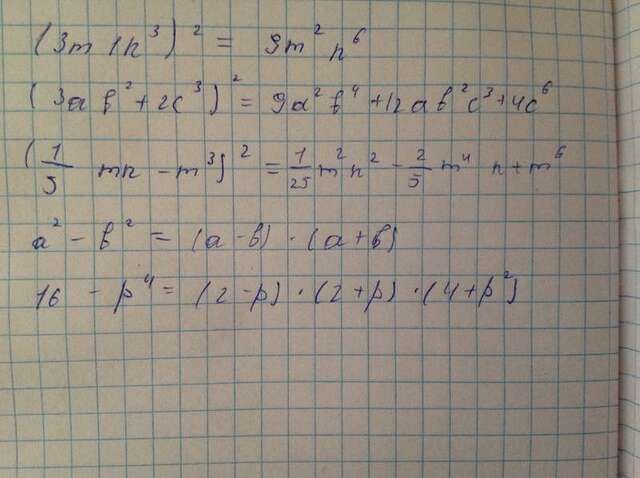 (3m 1n³)² = 9m²n⁶
(3ab²+2c³)² = 9a²b⁴+12ab²c³+4c⁶
(1/5 mn - m³)² = 1/25 m²n² - 2/5 m⁴ n+m⁶
a² - b² = (a-b)·(a+b)
16 - p⁴ = (2-p)·(2+p)·(4+p²)